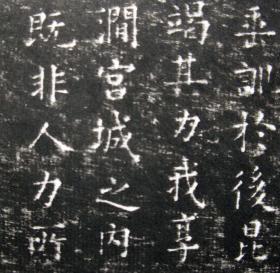 垂訓於後昆
竭其力我享
澗宮城之内
既非人力所